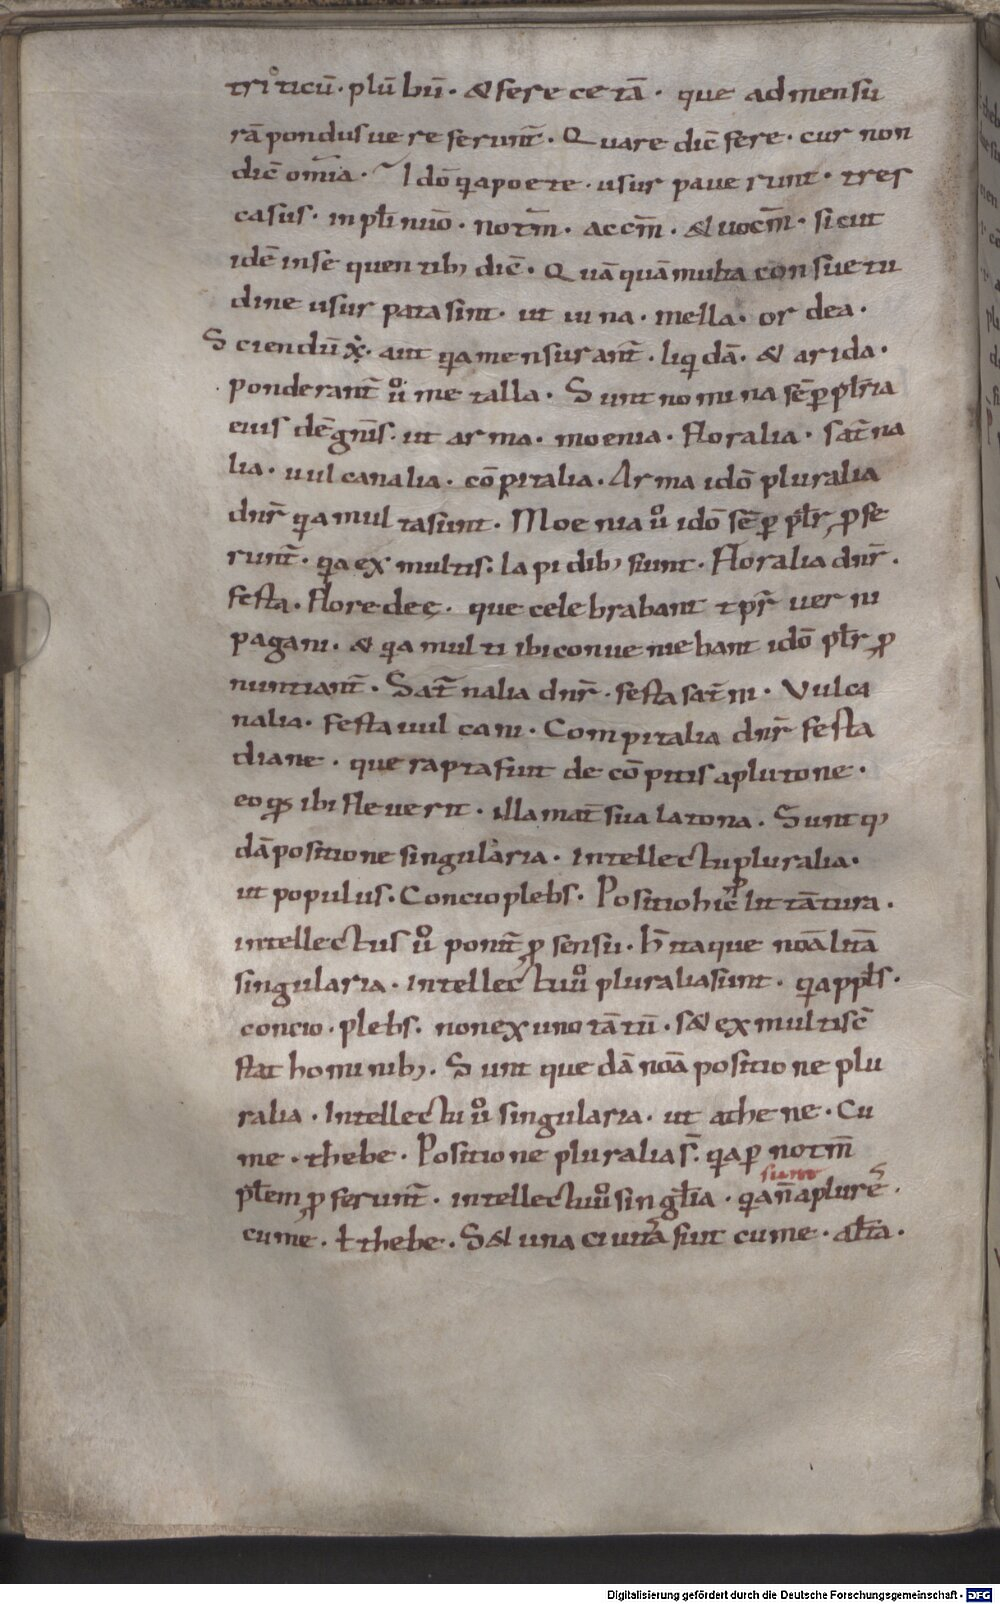 triticū · plū bū · & fere ce tā · que ad mensu
rā pondus ue re ferunt̄ · Quare dic̄ fere · cur non
dic̄ om̄ia · Idō q̄a poete · usur paue runt · tres
casus · in pl̄i nūo · not̄m · acc̄m · & uoc̄m · sicut
idē inse quen tib; dic̄ · Quāquā multa con sue tu
dine usur pata sint · ut ui na · mella · or dea ·
Sciendū x̄ · aut q̄a mensurant̄ · liq̄dā · & arida ·
ponderant̄ ů me talla · Sunt no mi na sēp pl̄ria
eius dē gn̄is · ut ar ma · moenia · floralia · sat̄na
lia · uul canalia · cō pitalia · Ar ma idō pluralia
dnr̄ q̄a mul ta sunt · Moe nia ů idō sēp pl̄r p̱ fe
runt̄ · q̄a ex multis · la pi dib; fiunt · Floralia dnr̄ ·
festa · flore deę · que cele brabant tp̄r uer ni
pagani · & q̄a mul ti ibi conue nie bant idō pl̄r p̱
nuntiant̄ · Sat̄ nalia dnr̄ · festa sat̄ ni · Vulca
nalia · festa uul cani · Compitalia dnr̄ festa
diane · que rapta fuit de cō pitis a plutone ·
eo qđ ibi fleuerit · illa mat̄ sua latona · Sunt q̄
dā positione singularia · intellectu pluralia ·
ut populus · Concio plebs · Positio hic p̱ litt̄atura ·
intellectus ů ponit̄ p̱ sensu · h̄ itaque noā litā
singularia · intellectu ů pluralia sunt · q̄a ppl̄s ·
concio · plebs · non ex uno tātū · s& ex multis c̄
stat hominib; · Sunt que dā noā positio ne plu
ralia · Intellectu ů singularia · ut athe ne · Cu
me · thebe · Positio ne pluralia s̄ · q̄a p̱ not̄m
sunt
pl̄em p̱ ferunt̄ · intellectu ů sin gl̄ia · q̄a n̄ a plures ·
cume · ł thebe · S& una ciuitas fuit cume · al̄ia ·
Digitalisierung gefördert durch die Deutsche Forschungsgemeinschaft · DFG